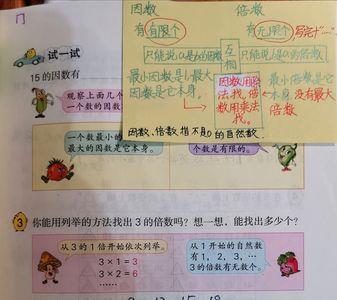 试一试
15的因数有
观察上面几个
一个数的因数
一个数最小的
最大的因数是它本身。
数是有限的。
因数
倍数
有有限个
有无限个
写完于"……"
只能说a是b的因数
互相
只能说b是a的倍数
最小因数是1,最大
因数是它本身。
因数用除
法找,倍
数用乘法
找。
最小倍数是它
本身,没有最大
倍数
因数、倍数指不是0的自然数
3 你能用列举的方法找出3的倍数吗?想一想,能找出多少个?
从3的1倍开始依次列举。
3×1=3
3×2=6
……
从1开始的自然数
有1,2,3,…
3的倍数有无数个。